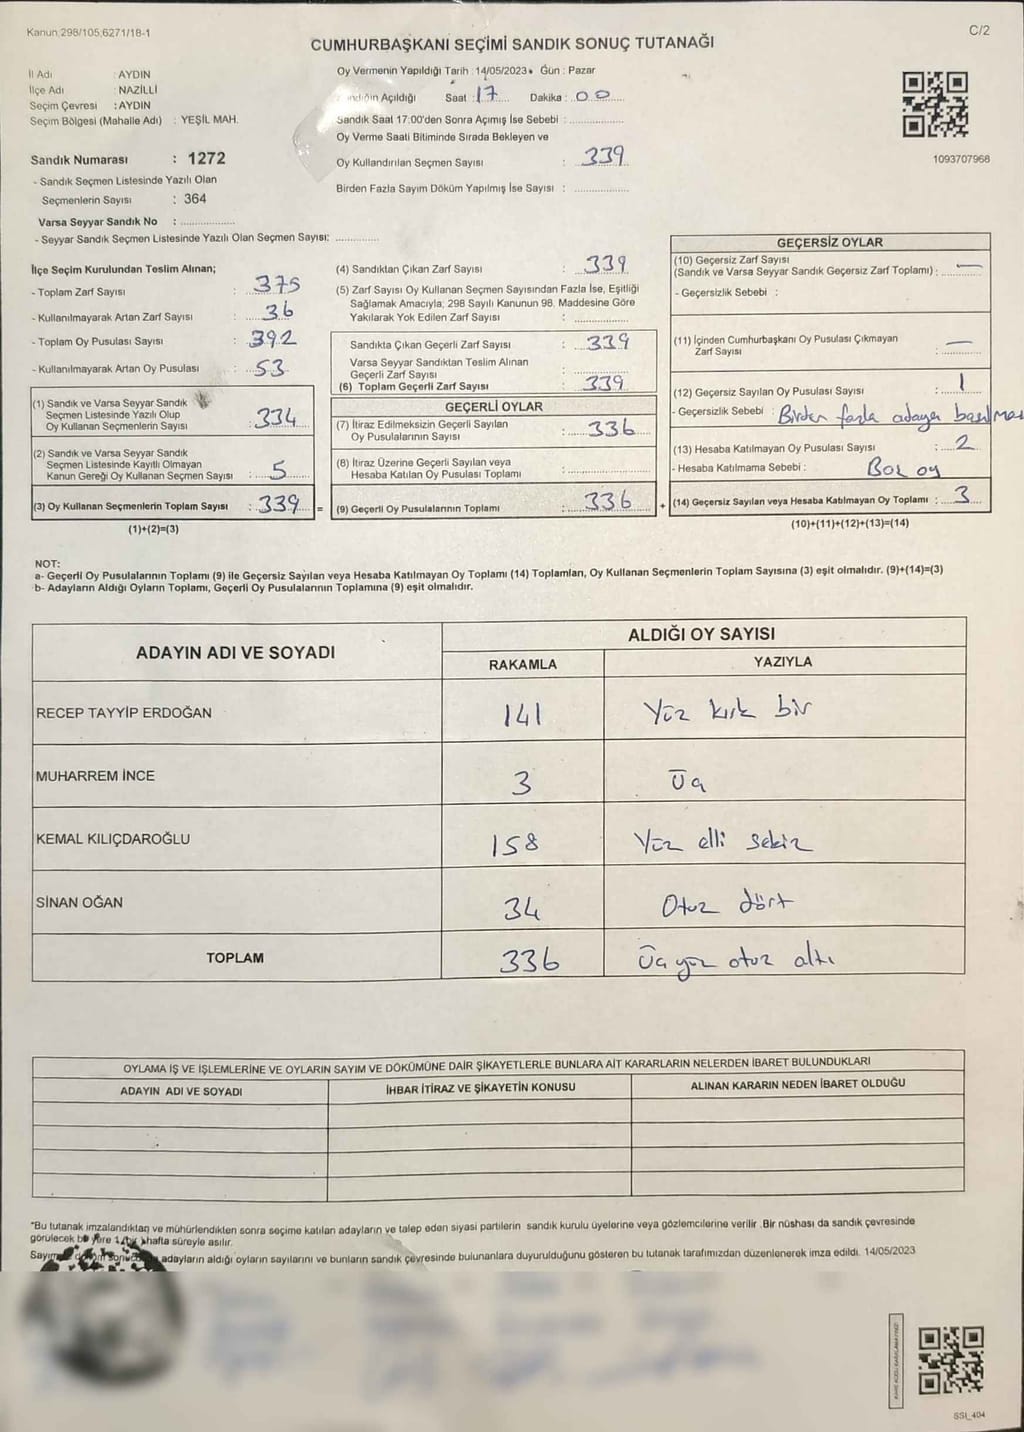 Kanun:298/105,6271/18-1
C/2
CUMHURBAŞKANI SEÇİMİ SANDIK SONUÇ TUTANAĞI
İl Adı : AYDIN
İlçe Adı : NAZİLLİ
Seçim Çevresi : AYDIN
Seçim Bölgesi (Mahalle Adı) : YEŞİL MAH.
Sandık Numarası : 1272
- Sandık Seçmen Listesinde Yazılı Olan
Seçmenlerin Sayısı : 364
Varsa Seyyar Sandık No : ....................
- Seyyar Sandık Seçmen Listesinde Yazılı Olan Seçmen Sayısı: ...............
Oy Vermenin Yapıldığı Tarih : 14/05/2023 Gün : Pazar
Açıldığı Saat : 17 Dakika : 00
Sandık Saat 17:00'den Sonra Açımış İse Sebebi : ....................
Oy Verme Saati Bitiminde Sırada Bekleyen ve
Oy Kullandırılan Seçmen Sayısı : 339
Birden Fazla Sayım Döküm Yapılmış İse Sayısı : ....................
1093707968
İlçe Seçim Kurulundan Teslim Alınan;
- Toplam Zarf Sayısı : 375
- Kullanılmayarak Artan Zarf Sayısı : 36
- Toplam Oy Pusulası Sayısı : 392
- Kullanılmayarak Artan Oy Pusulası : 53
(1) Sandık ve Varsa Seyyar Sandık
Seçmen Listesinde Yazılı Olup
Oy Kullanan Seçmenlerin Sayısı : 334
(2) Sandık ve Varsa Seyyar Sandık
Seçmen Listesinde Kayıtlı Olmayan
Kanun Gereği Oy Kullanan Seçmen Sayısı : 5
(3) Oy Kullanan Seçmenlerin Toplam Sayısı : 339 =
(1)+(2)=(3)
(4) Sandıktan Çıkan Zarf Sayısı : 339
(5) Zarf Sayısı Oy Kullanan Seçmen Sayısından Fazla İse, Eşitliği
Sağlamak Amacıyla; 298 Sayılı Kanunun 98. Maddesine Göre
Yakılarak Yok Edilen Zarf Sayısı : ....................
Sandıkta Çıkan Geçerli Zarf Sayısı : 339
Varsa Seyyar Sandıktan Teslim Alınan
Geçerli Zarf Sayısı : ....................
(6) Toplam Geçerli Zarf Sayısı : 339
GEÇERLİ OYLAR
(7) İtiraz Edilmeksizin Geçerli Sayılan
Oy Pusulalarının Sayısı : 336
(8) İtiraz Üzerine Geçerli Sayılan veya
Hesaba Katılan Oy Pusulası Toplamı : ....................
(9) Geçerli Oy Pusulalarının Toplamı : 336 +
GEÇERSİZ OYLAR
(10) Geçersiz Zarf Sayısı
(Sandık ve Varsa Seyyar Sandık Geçersiz Zarf Toplamı) : —
- Geçersizlik Sebebi :
(11) İçinden Cumhurbaşkanı Oy Pusulası Çıkmayan
Zarf Sayısı : —
(12) Geçersiz Sayılan Oy Pusulası Sayısı : 1
- Geçersizlik Sebebi : Birden fazla adaya basılması
(13) Hesaba Katılmayan Oy Pusulası Sayısı : 2
- Hesaba Katılmama Sebebi : Boz oy
(14) Geçersiz Sayılan veya Hesaba Katılmayan Oy Toplamı : 3
(10)+(11)+(12)+(13)=(14)
NOT:
a- Geçerli Oy Pusulalarının Toplamı (9) ile Geçersiz Sayılan veya Hesaba Katılmayan Oy Toplamı (14) Toplamları, Oy Kullanan Seçmenlerin Toplam Sayısına (3) eşit olmalıdır. (9)+(14)=(3)
b- Adayların Aldığı Oyların Toplamı, Geçerli Oy Pusulalarının Toplamına (9) eşit olmalıdır.
ADAYIN ADI VE SOYADI
ALDIĞI OY SAYISI
RAKAMLA YAZIYLA
RECEP TAYYİP ERDOĞAN 141 Yüz kırk bir
MUHARREM İNCE 3 Üç
KEMAL KILIÇDAROĞLU 158 Yüz elli sekiz
SİNAN OĞAN 34 Otuz dört
TOPLAM 336 Üç yüz otuz altı
OYLAMA İŞ VE İŞLEMLERİNE VE OYLARIN SAYIM VE DÖKÜMÜNE DAİR ŞİKAYETLERLE BUNLARA AİT KARARLARIN NELERDEN İBARET BULUNDUKLARI
ADAYIN ADI VE SOYADI İHBAR İTİRAZ VE ŞİKAYETİN KONUSU ALINAN KARARIN NEDEN İBARET OLDUĞU
*Bu tutanak imzalandıktan ve mühürlendikten sonra seçime katılan adayların ve talep eden siyasi partilerin sandık kurulu üyelerine veya gözlemcilerine verilir. Bir nüshası da sandık çevresinde
görülecek bir yere 1 hafta süreyle asılır.
adayların aldığı oyların sayılarını ve bunların sandık çevresinde bulunanlara duyurulduğunu gösteren bu tutanak tarafımızdan düzenlenerek imza edildi. 14/05/2023
SSI_404